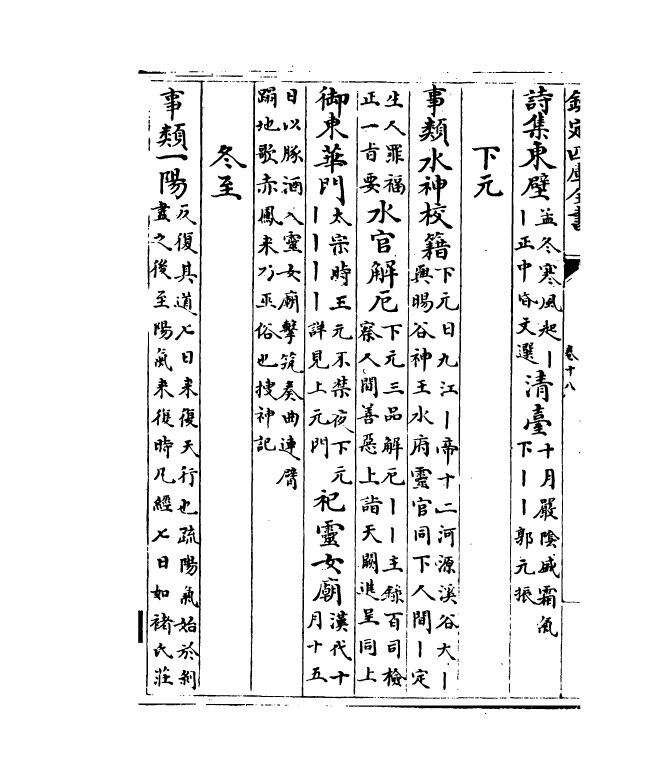 欽定四庫全書
卷十八
詩集東壁孟冬寒風起丨丨正中昏文選清臺十月嚴陰盛霜氣下丨丨郭元振
下元
事類水神校籍下元日九江丨帝十二河源溪谷大丨與暘谷神王水府靈官同下人間丨定
生人罪福正一旨要水官解厄下元三品解厄丨丨主錄百司檢察人間善惡上詣天闕進呈同上
御東華門太宗時三元不禁夜下元丨丨丨丨詳見上元門祀靈女廟漢代十月十五
日以豚酒入靈女廟擊筑奏曲連臂蹋地歌赤鳳來乃巫俗也搜神記
冬至
事類一陽反復其道七日來復天行也疏陽氣始於剝盡之後至陽氣來復時凡經七日如褚氏莊